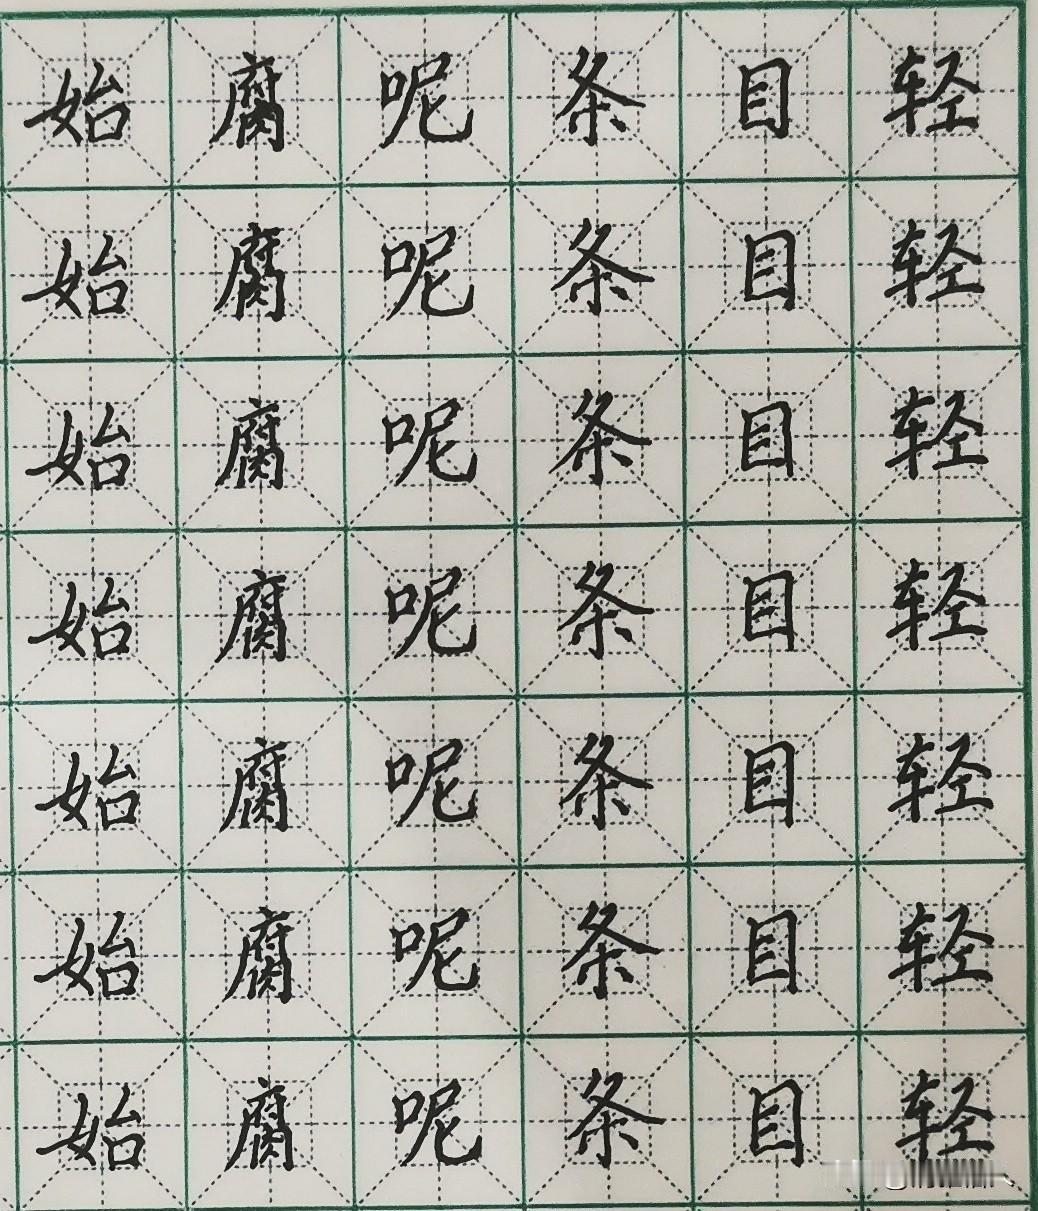 始腐呢条目轻
始腐呢条目轻
始腐呢条目轻
始腐呢条目轻
始腐呢条目轻
始腐呢条目轻
始腐呢条目轻